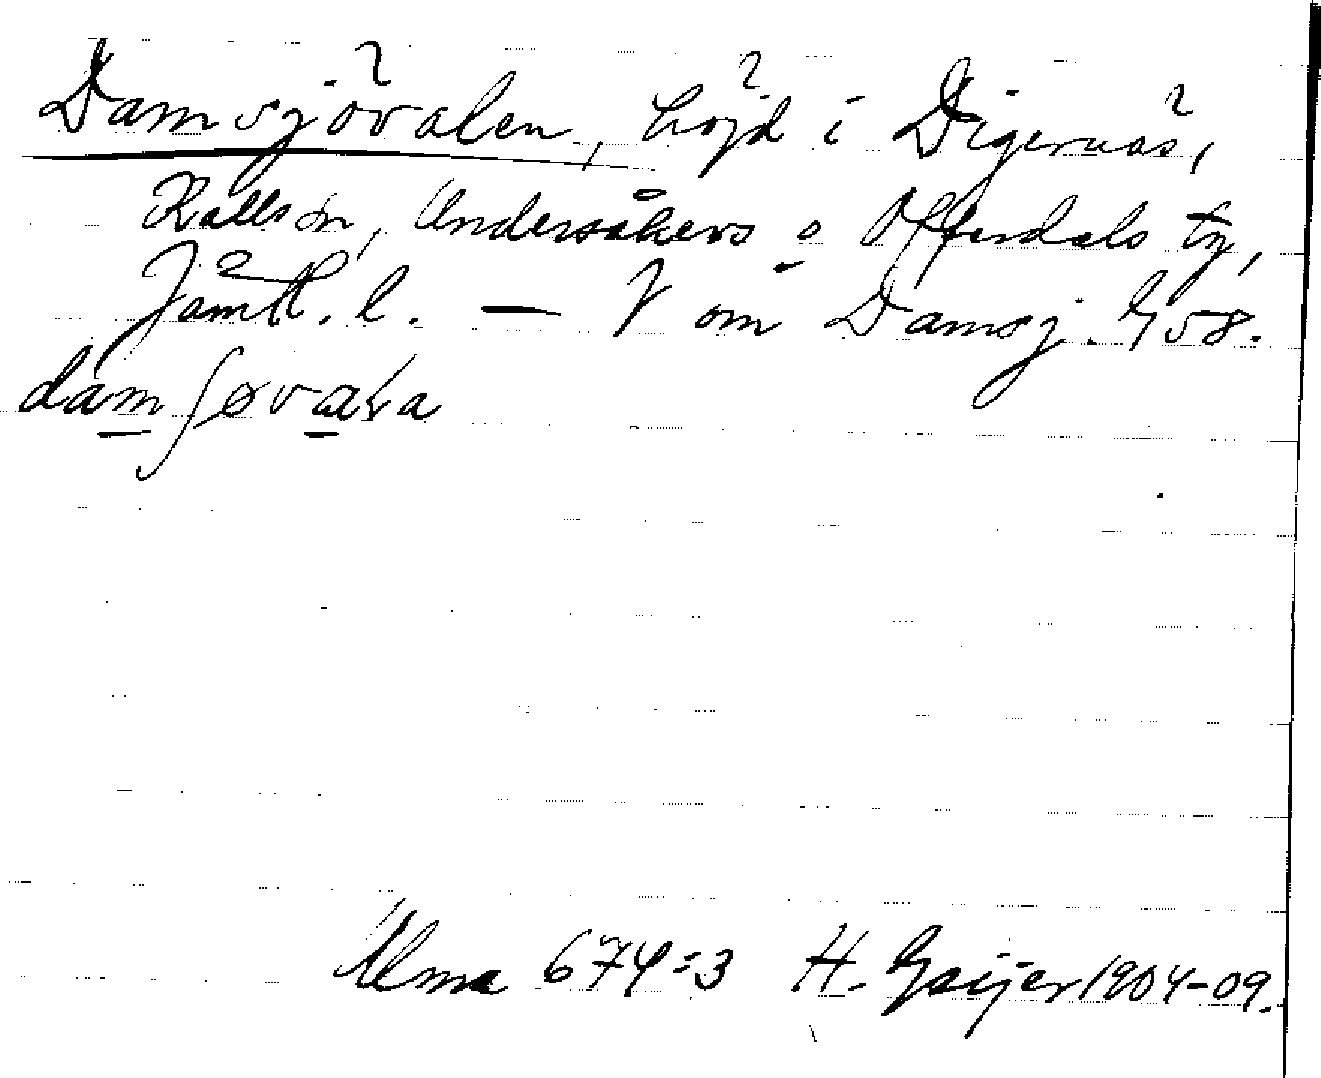 Damsjövalen, höjd i Digernäs,
Kalls sn, Undersåkers o Offerdals tg,
Jämtl. l. — V om Damsj. G 58.
damʃøvaɫa
Ulma 674:3 H. Geijer 1904-09.